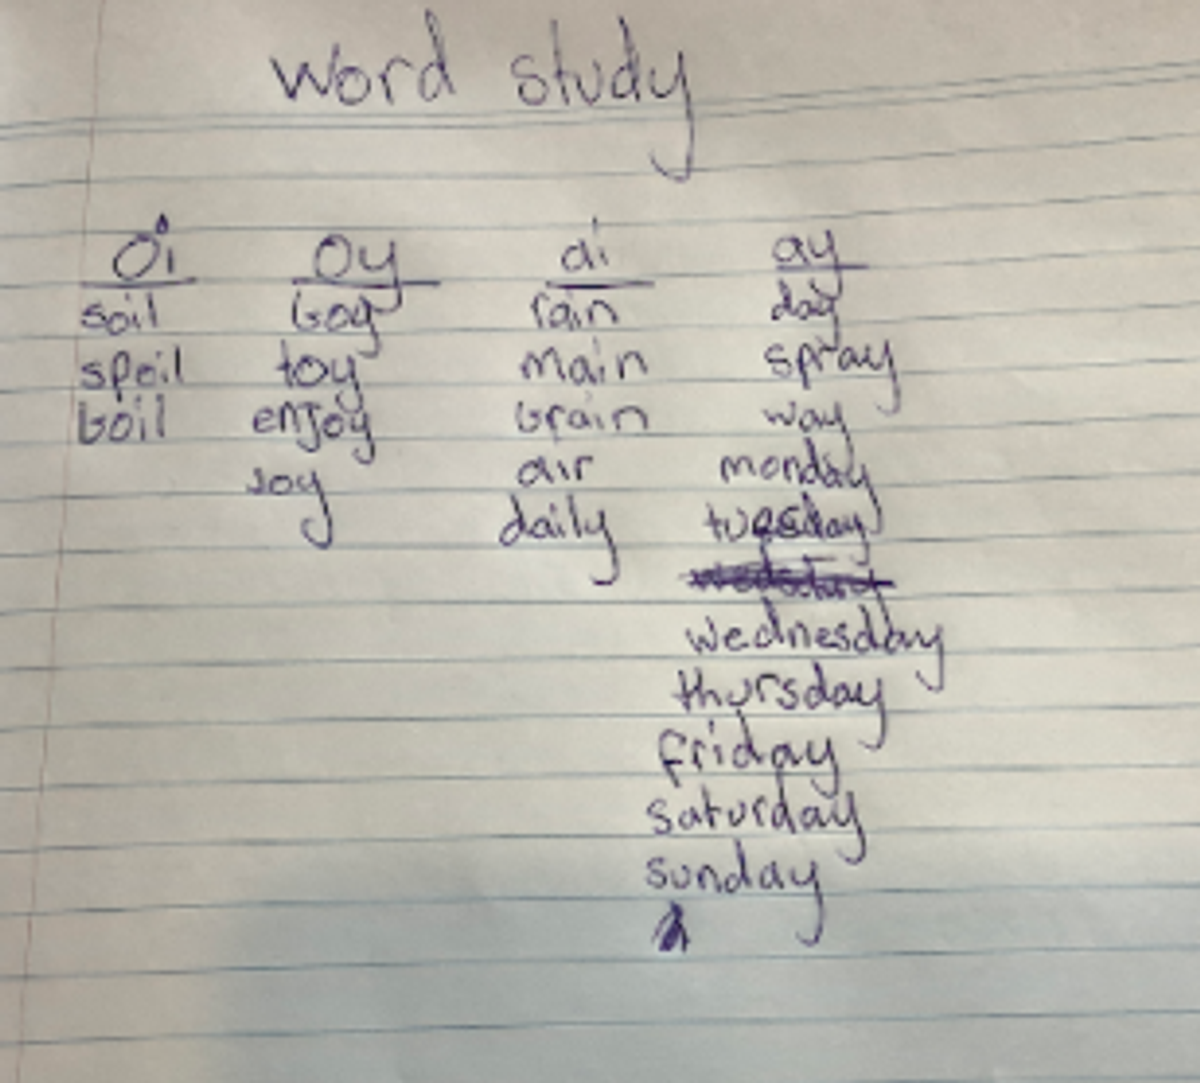 Word study
Oi Oy ai ay
soil boy rain day
spoil toy main spray
boil enjoy brain way
joy air monday
daily tuesday
wednesday
thursday
friday
saturday
sunday